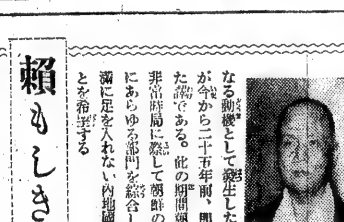 なる動機として誕生した
が今から二十五年前、即
た譯である。此の期間彌
非常時局に際して朝鮮の
にあらゆる部門を綜合し
滿に足を入れない內地國
とを希望する
賴もしき